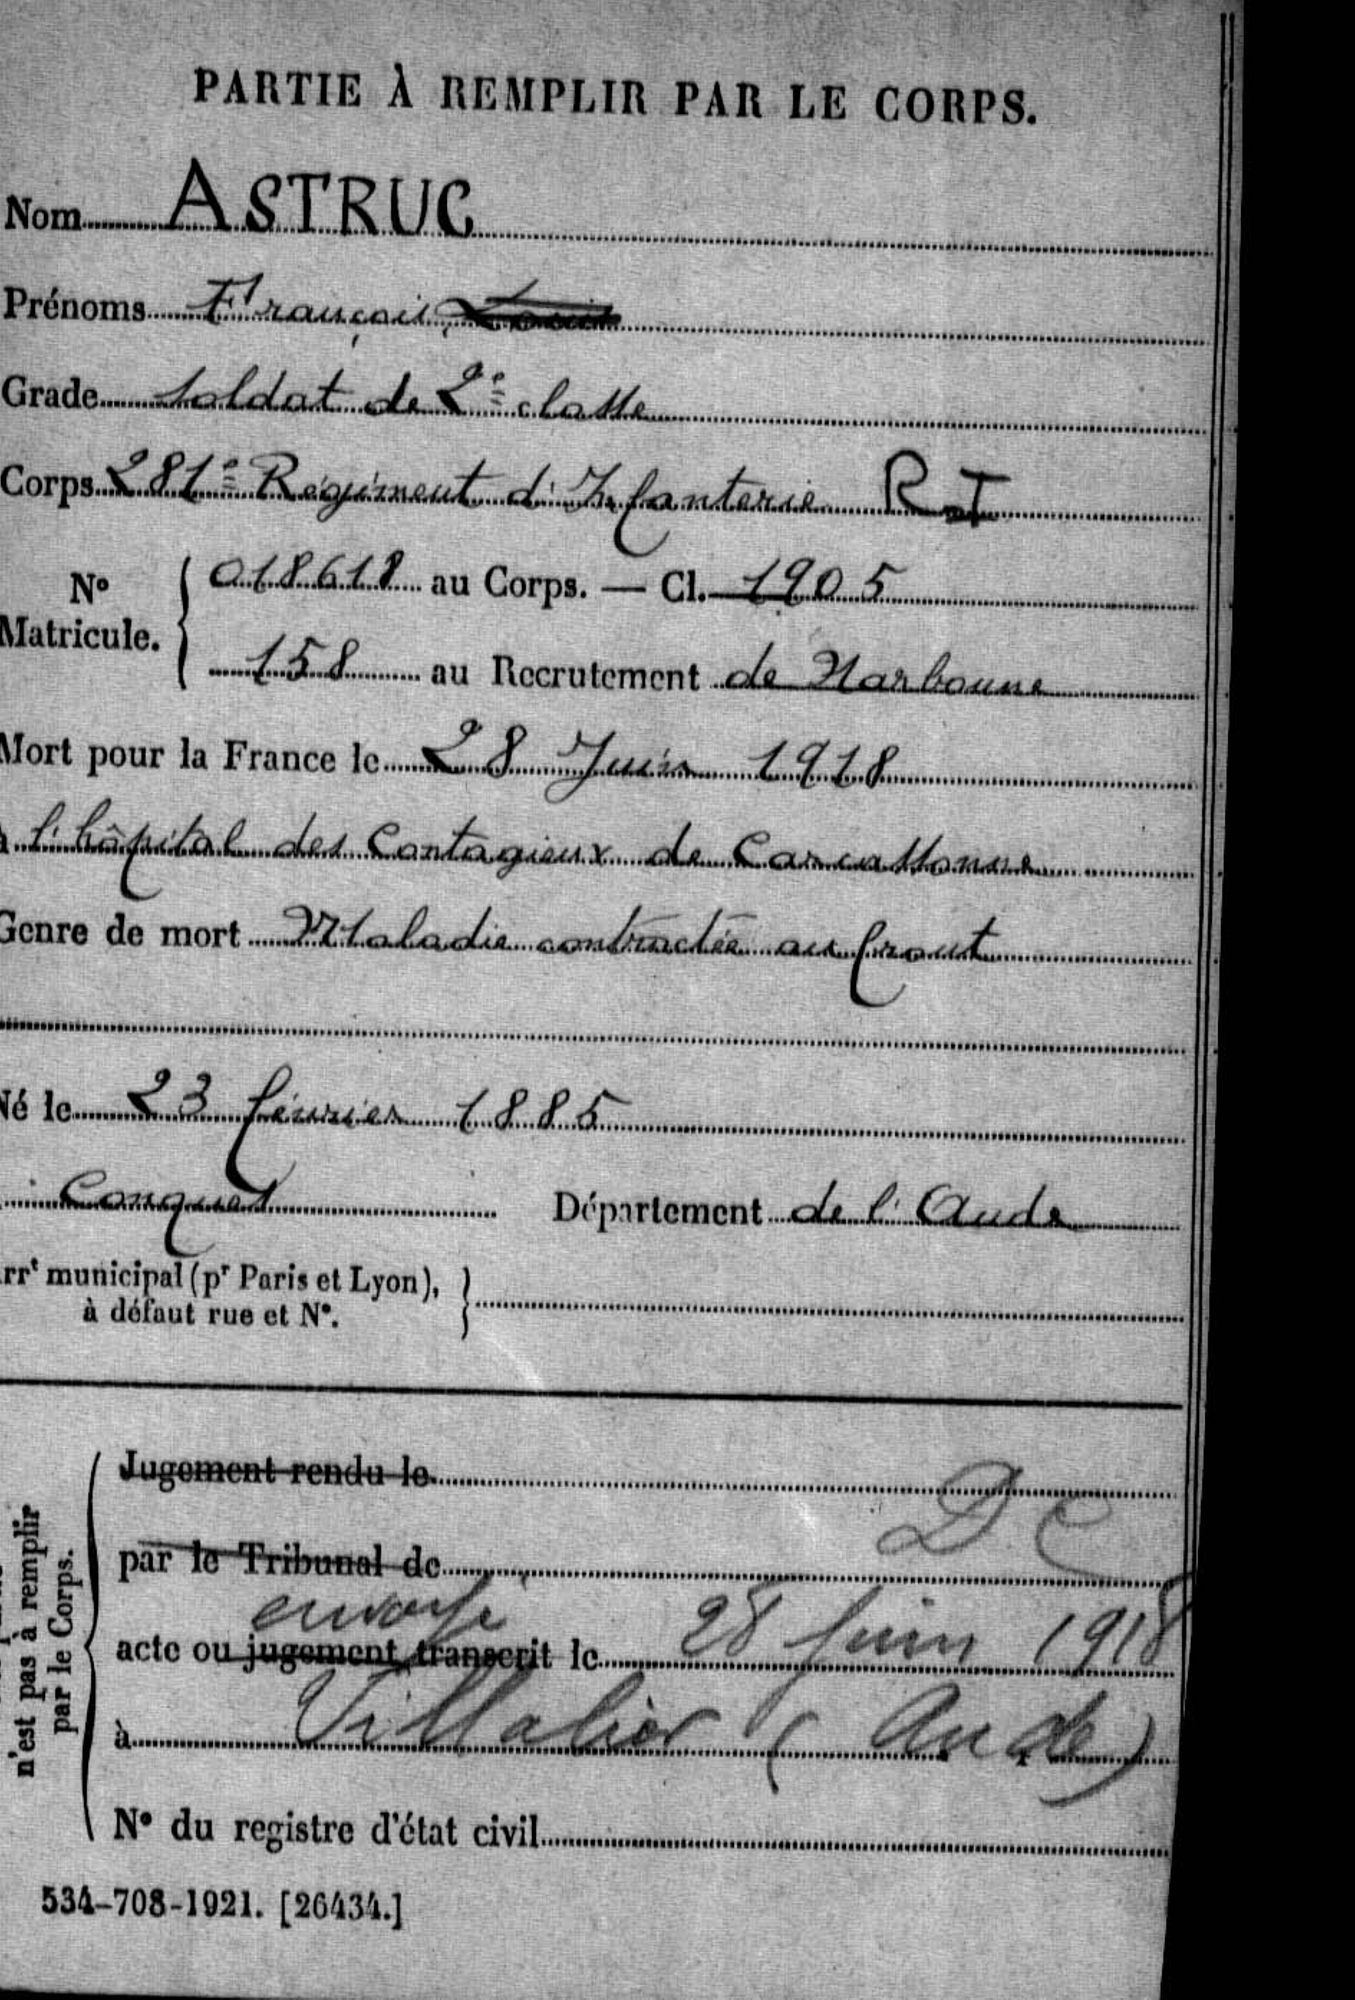 PARTIE À REMPLIR PAR LE CORPS.
Nom ASTRUC
Prénoms François, Louis
Grade Soldat de 2e classe
Corps 281e Régiment d'Infanterie R I
No Matricule. 018618 au Corps. — Cl. 1905
158 au Recrutement de Narbonne
Mort pour la France le 28 Juin 1918
à l'hôpital des Contagieux de Carcassonne
Genre de mort Maladie contractée au front
Né le 23 février 1885
Conques Département de l'Aude
Arrt municipal (pr Paris et Lyon),
à défaut rue et No.
n'est pas à remplir
par le Corps.
Jugement rendu le
D C
par le Tribunal de
envoyé
acte ou jugement transcrit le 28 juin 1918
à Villalier (Aude)
No du registre d'état civil
534-708-1921. [26434.]